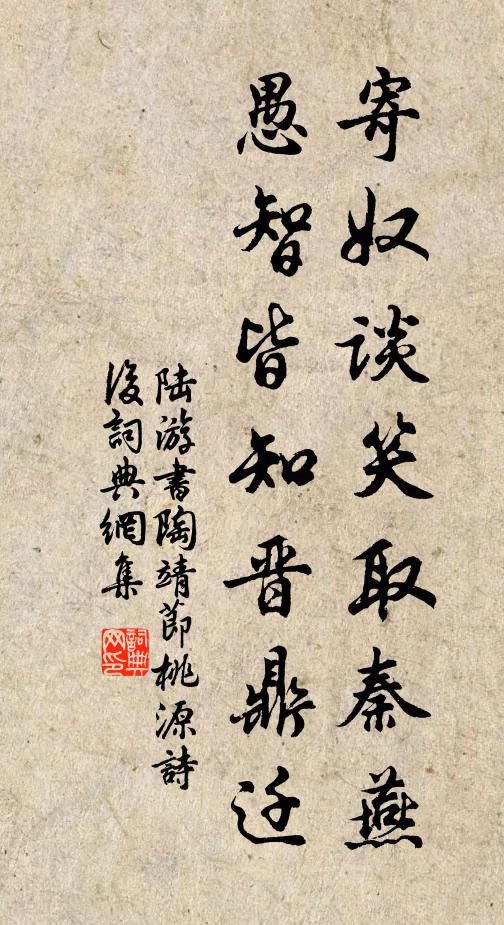 寄奴谈笑取秦燕
愚智皆知晋鼎迁
陆游书陶靖节桃源詩
後詞典網集
詞典网印